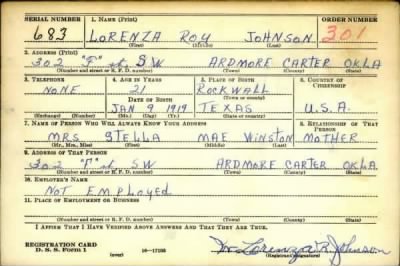 SERIAL NUMBER 1. NAME (Print) ORDER NUMBER
683 LORENZA ROY JOHNSON 301
(First) (Middle) (Last)
2. ADDRESS (Print)
302 "F" st. S.W ARDMORE CARTER OKLA
(Number and street or R. F. D. number) (Town) (County) (State)
3. TELEPHONE 4. AGE IN YEARS 5. PLACE OF BIRTH 6. COUNTRY OF CITIZENSHIP
NONE 21 ROCKWALL
DATE OF BIRTH (Town or county)
JAN 9 1919 TEXAS U.S.A.
(Exchange) (Number) (Mo.) (Day) (Yr.) (State or country)
7. NAME OF PERSON WHO WILL ALWAYS KNOW YOUR ADDRESS 8. RELATIONSHIP OF THAT PERSON
MRS. STELLA MAE WINSTON MOTHER
(Mr., Mrs., Miss) (First) (Middle) (Last)
9. ADDRESS OF THAT PERSON
302 "F" st. S.W ARDMORE CARTER OKLA.
(Number and street or R. F. D. number) (Town) (County) (State)
10. EMPLOYER'S NAME
NOT EMPLOYED
11. PLACE OF EMPLOYMENT OR BUSINESS
(Number and street or R. F. D. number) (Town) (County) (State)
I AFFIRM THAT I HAVE VERIFIED ABOVE ANSWERS AND THAT THEY ARE TRUE.
REGISTRATION CARD
D. S. S. Form 1 (over) Lorenza R. Johnson
(Registrant's signature)